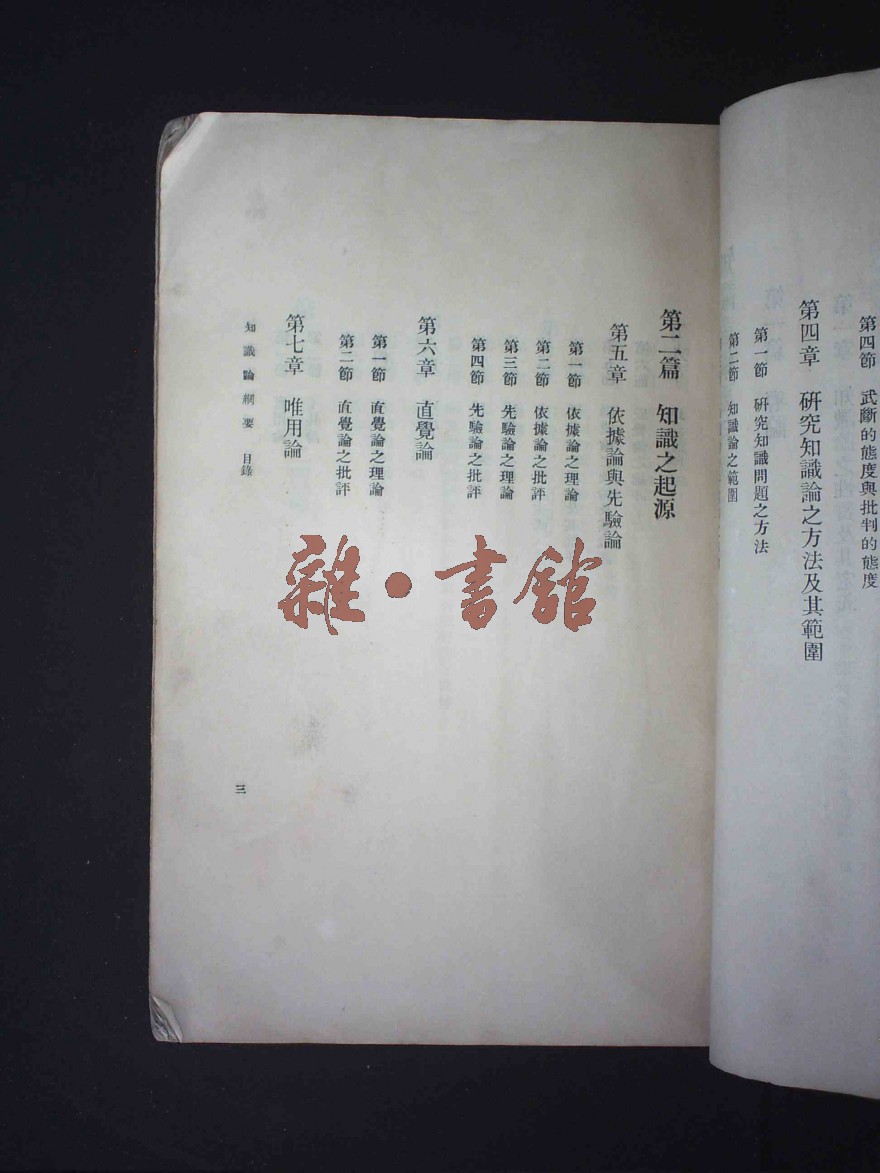 第四節 武斷的態度與批判的態度
第四章 研究知識論之方法及其範圍
第一節 研究知識問題之方法
第二節 知識論之範圍
第二篇 知識之起源
第五章 依據論與先驗論
第一節 依據論之理論
第二節 依據論之批評
第三節 先驗論之理論
第四節 先驗論之批評
第六章 直覺論
第一節 直覺論之理論
第二節 直覺論之批評
第七章 唯用論
知識論綱要 目錄
三
雜·書館